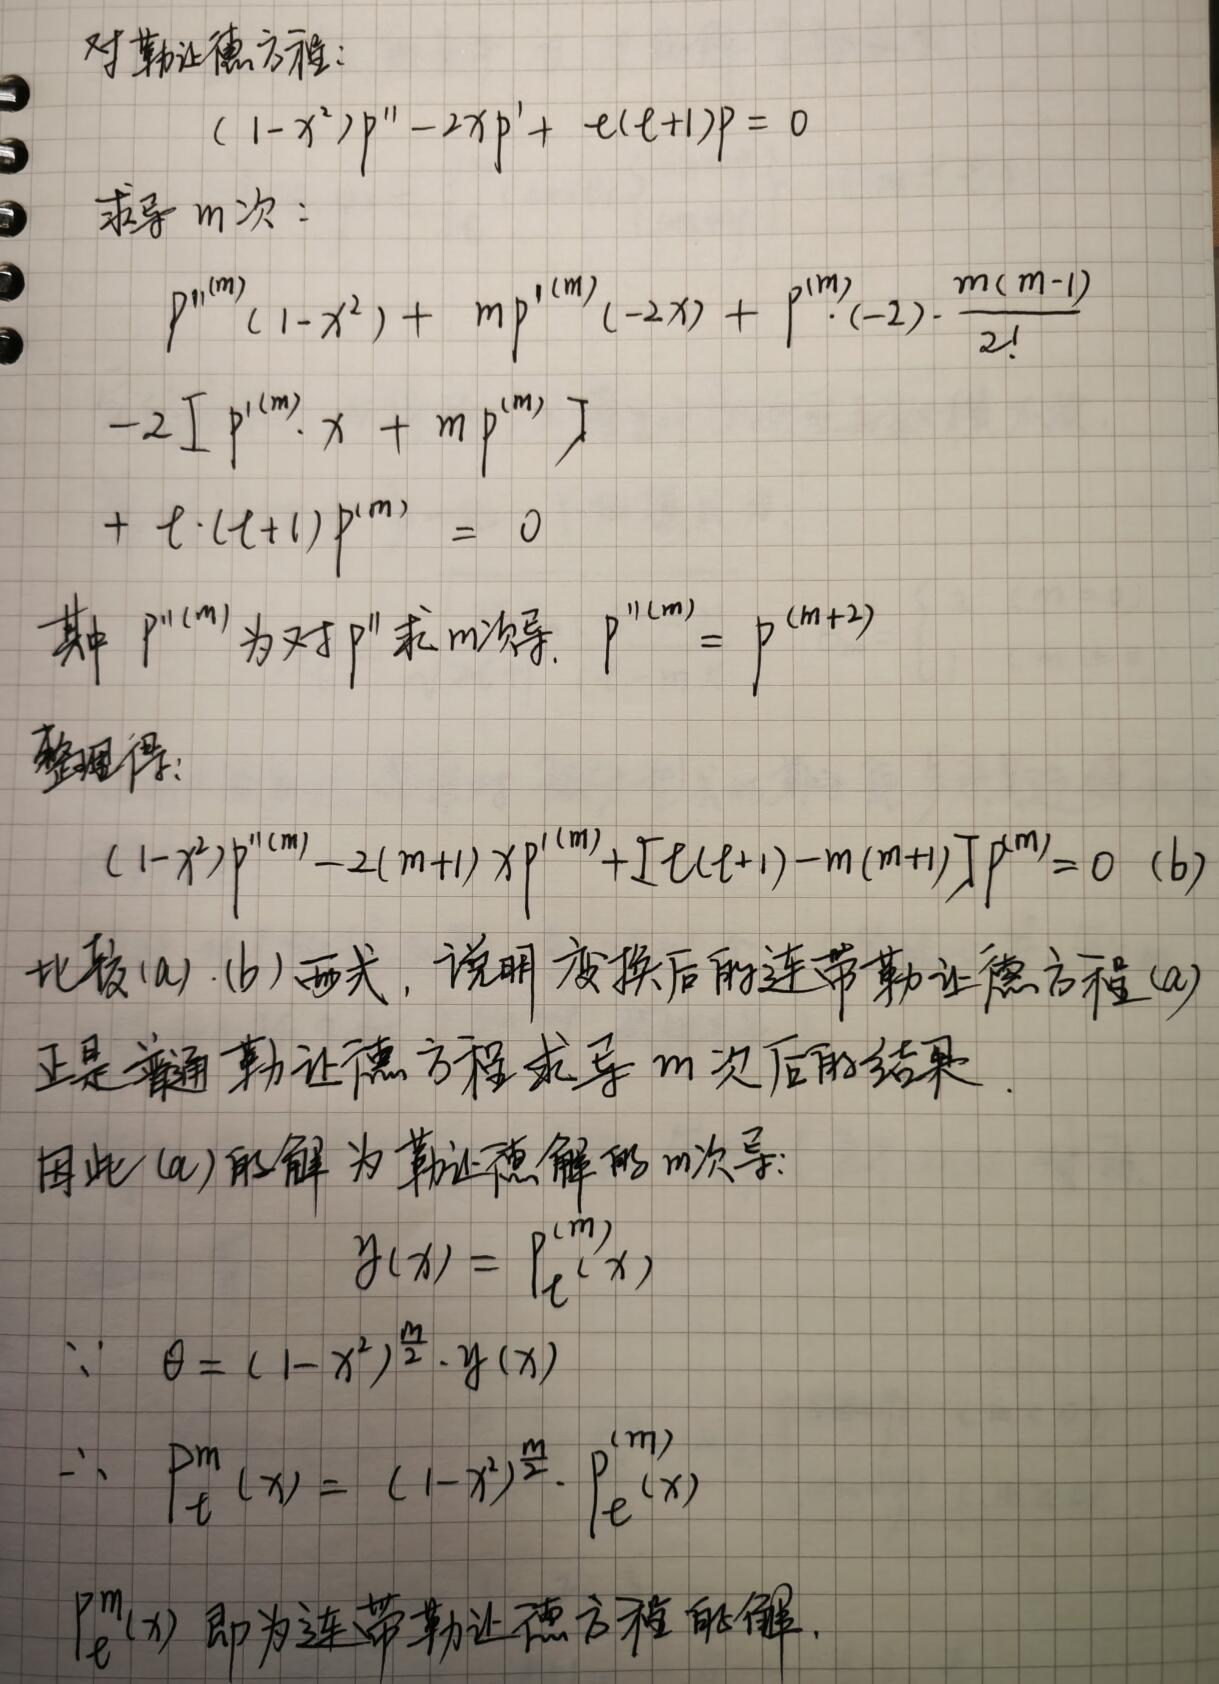 对勒让德方程:
(1-x²)p'' - 2xp' + ℓ(ℓ+1)p = 0
求导m次:
p''⁽ᵐ⁾(1-x²) + mp'⁽ᵐ⁾(-2x) + p⁽ᵐ⁾·(-2)·\frac{m(m-1)}{2!}
-2[p'⁽ᵐ⁾·x + mp⁽ᵐ⁾]
+ ℓ·(ℓ+1)p⁽ᵐ⁾ = 0
其中 p''⁽ᵐ⁾ 为对p''求m次导. p''⁽ᵐ⁾ = p⁽ᵐ⁺²⁾
整理得:
(1-x²)p''⁽ᵐ⁾ - 2(m+1)xp'⁽ᵐ⁾ + [ℓ(ℓ+1) - m(m+1)]p⁽ᵐ⁾ = 0 (b)
比较(a).(b)两式, 说明变换后的连带勒让德方程(a)
正是普通勒让德方程求导m次后的结果.
因此(a)的解为勒让德解的m次导:
y(x) = p_ℓ^{(m)}(x)
∵ θ = (1-x²)^{\frac{m}{2}}·y(x)
∴ p_ℓ^m(x) = (1-x²)^{\frac{m}{2}}·p_ℓ^{(m)}(x)
p_ℓ^m(x) 即为连带勒让德方程的解.